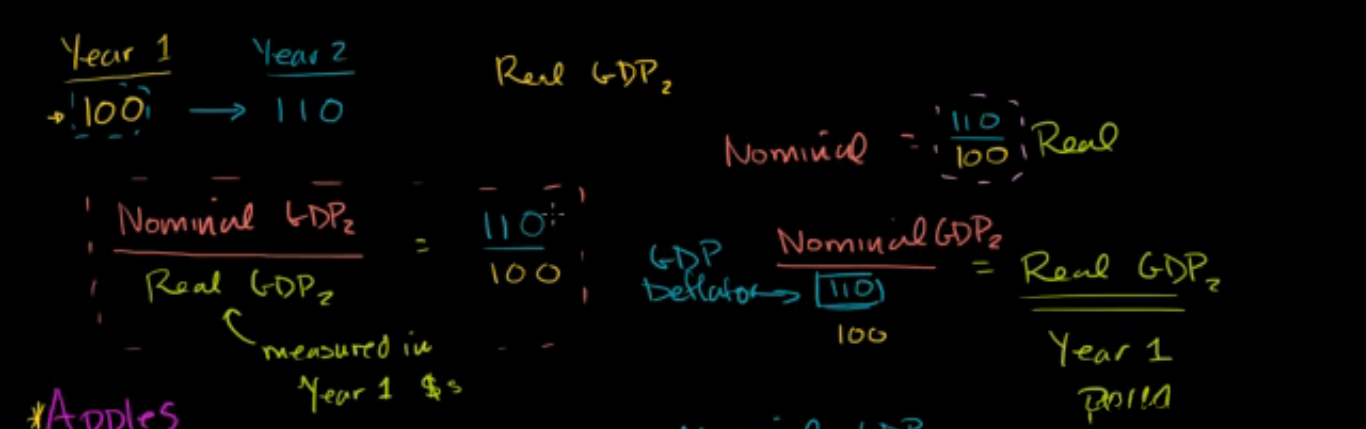 Year 1
Year 2
100 → 110
Real GDP₂
Nominal = 110/100 Real
Nominal GDP₂
Real GDP₂
= 110
100
measured in
Year 1 $s
GDP
Deflator →
Nominal GDP₂
110
100
= Real GDP₂
Year 1
*Apples
GDP